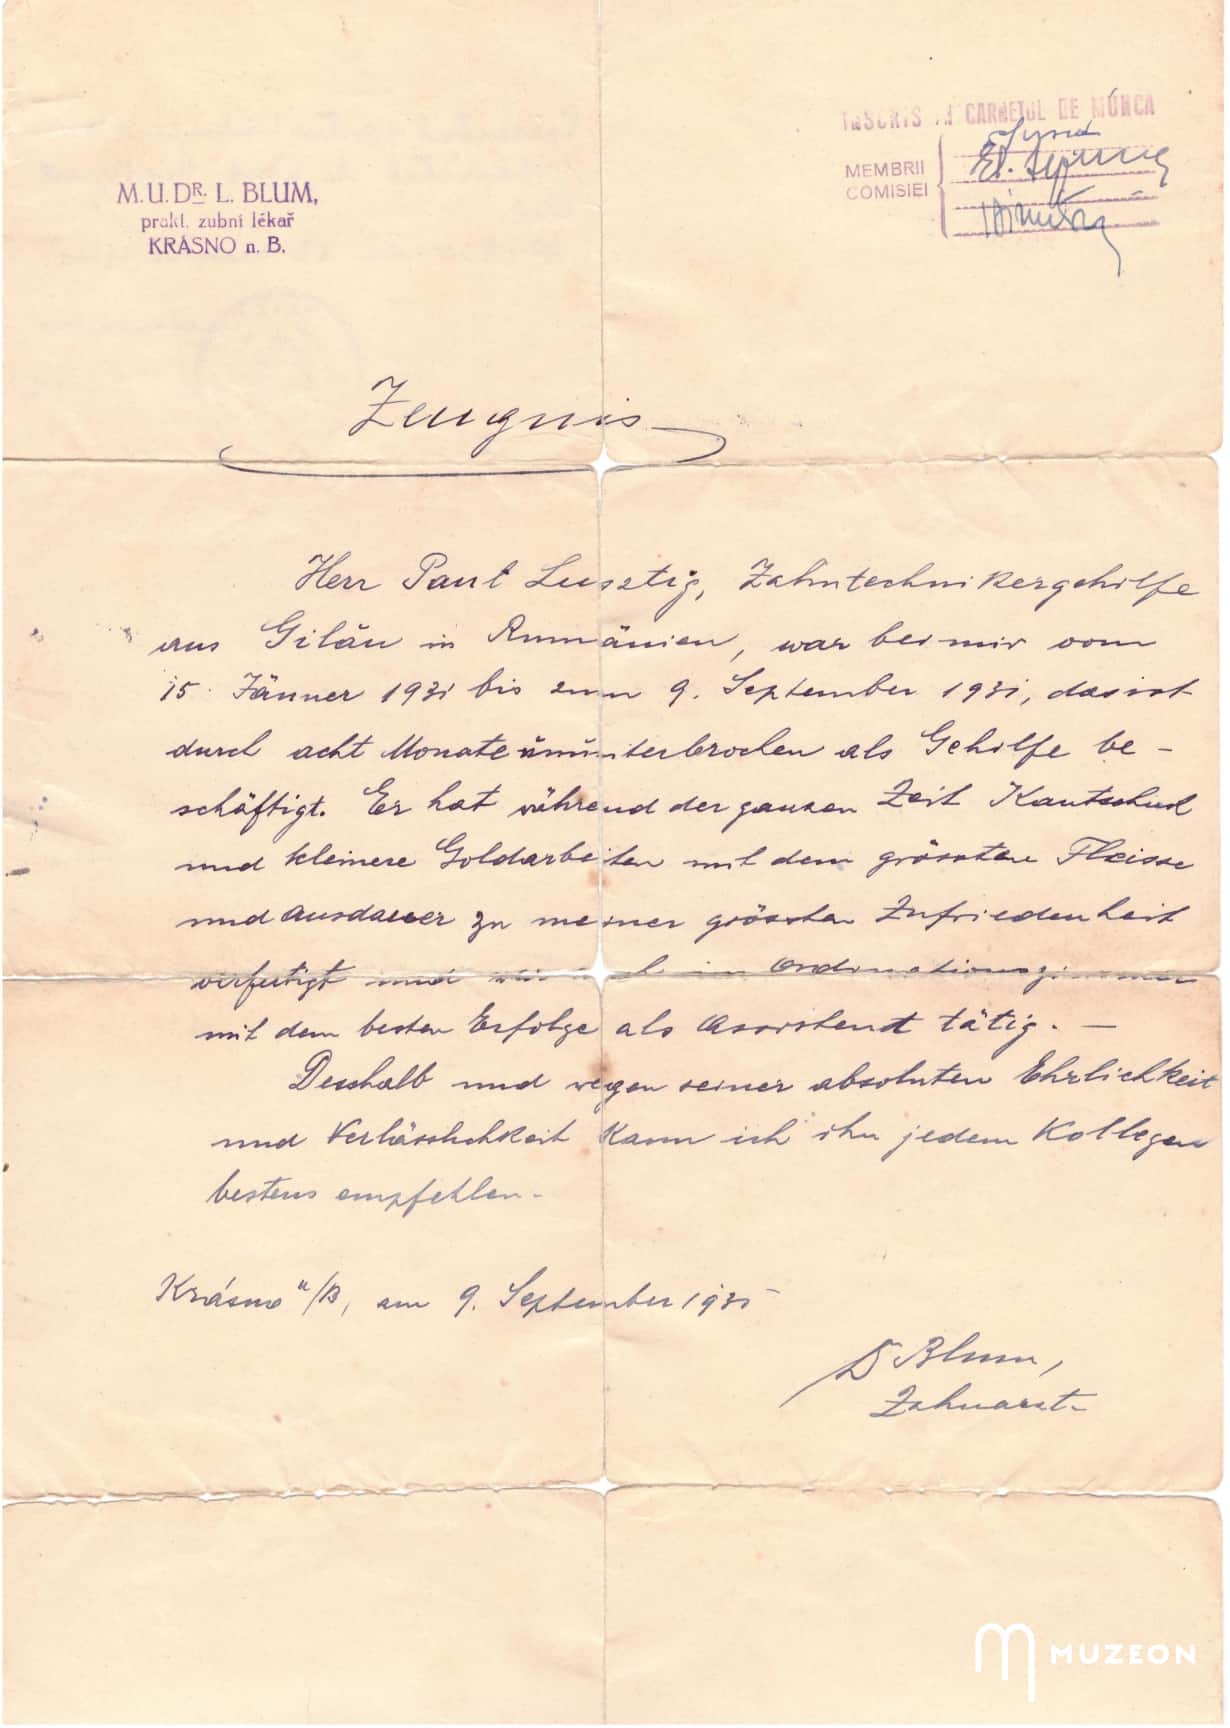 M. U. DR. L. BLUM,
prakt. zubní lékař
KRÁSNO n. B.
INSCRIS ÎN CARNETUL DE MUNCA
MEMBRII
COMISIEI
Zeugnis
Herr Paul Lusztig, Zahntechnikergehilfe
aus Gilău in Rumänien, war bei mir vom
15. Jänner 1931 bis zum 9. September 1931, das ist
durch acht Monate ununterbrochen als Gehilfe be-
schäftigt. Er hat während der ganzen Zeit Kautschuk
und kleinere Goldarbeiten mit dem grössten Fleisse
und Ausdauer zu meiner grössten Zufriedenheit
verfertigt und im Ordinationszimmer
mit dem besten Erfolge als Assistent tätig. —
Desshalb und wegen seiner absoluten Ehrlichkeit
und Verlässlichkeit kann ich ihn jedem Kollegen
bestens empfehlen.
Krásno n/B, am 9. September 1931
Dr Blum,
Zahnarzt
MUZEON